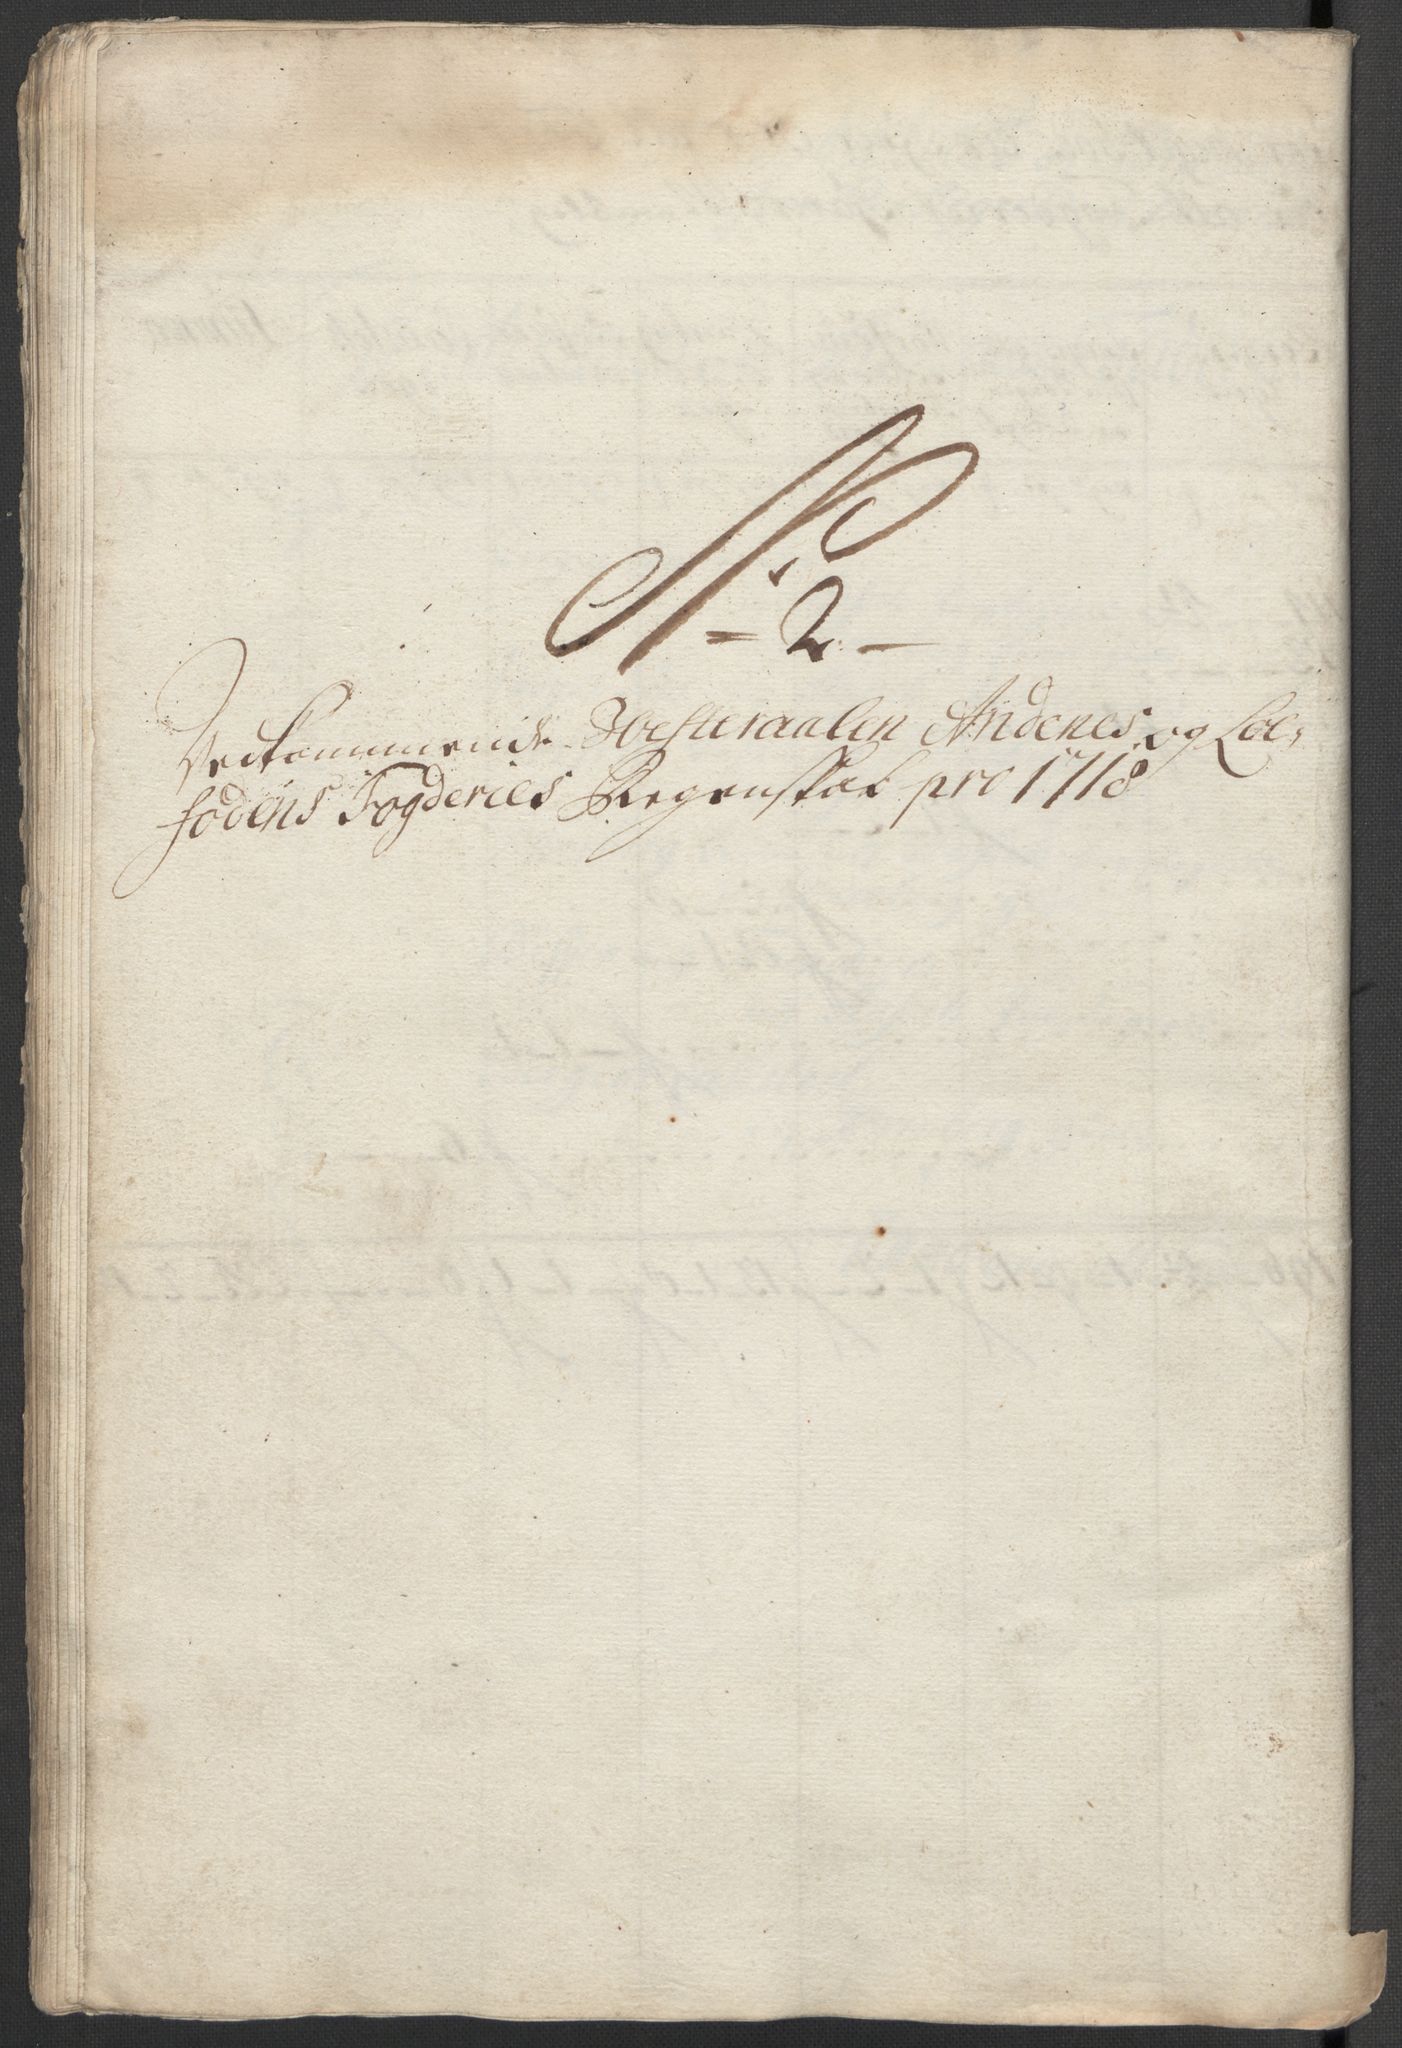 No
- 2 -
Vedkommende Westeraalen Andenes og Loe,
fodens Fogderies Regenskab pro 1718